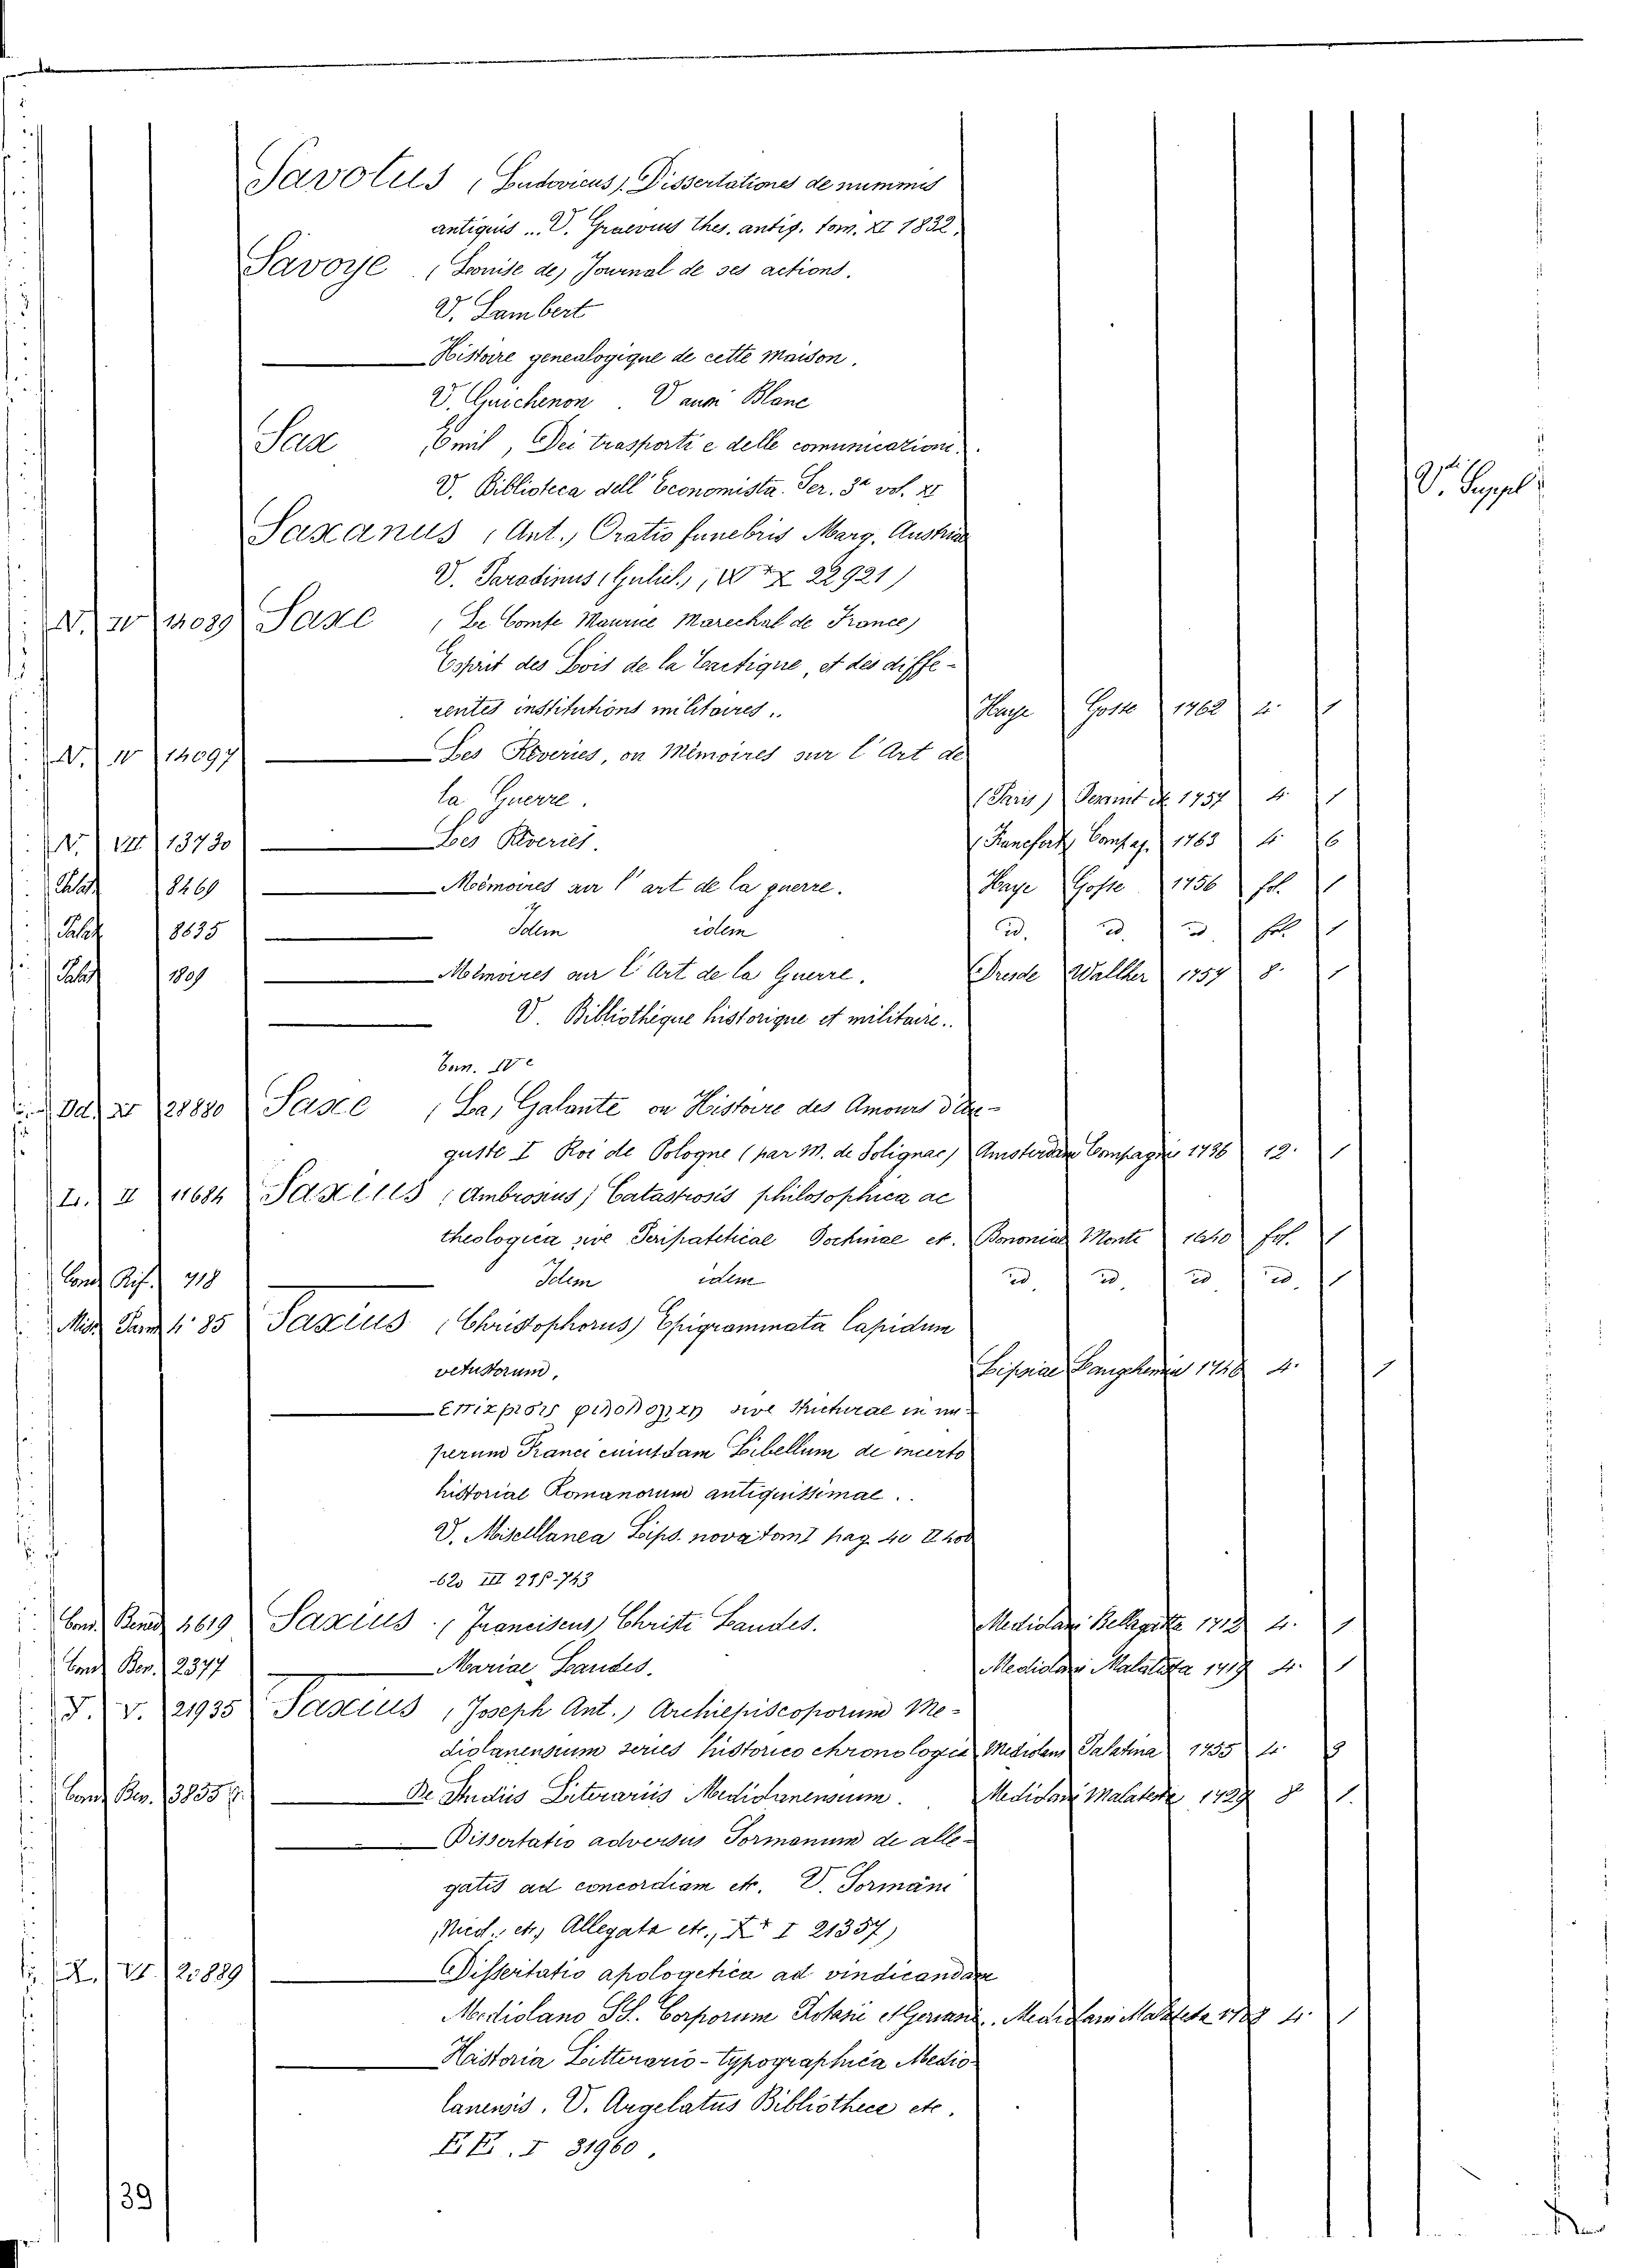 Savotus (Ludovicus) Dissertationes de nummis
antiquis ... V. Graevius thes. antiq. tom. XI 1832.
Savoye (Louise de) Journal de ses actions.
V. Lambert
Histoire genealogique de cette maison.
V. Guichenon. V aussi Blanc
Sax Emil, Dei trasporti e delle comunicazioni.
V. Biblioteca dell' Economista. Ser. 3ª vol. XI
V. Suppl.
Saxanus (Ant.) Oratio funebris Marg. Austriae
V. Paradinus (Guliel.) 22921)
N. IV 14089 Saxe (Le Comte Maurice Marechal de France)
Esprit des Lois de la Tactique, et des diffe-
rentes institutions militaires. Haye Gosse 1762 4. 1
N. IV 14097 Les Reveries, ou Mémoires sur l'Art de
la Guerre. (Paris) 1757 4. 1
N. VII 13730 Les Reveries. (Francfort) Compag. 1763 4. 6
Palat 8269 Mémoires sur l'art de la guerre. Haye Gosse 1756 fol. 1
Palat 8635 Idem idem id. id. id. fol. 1
Palat 1809 Mémoires sur l'Art de la Guerre. Dresde Walther 1757 8. 1
V. Bibliothèque historique et militaire..
tom. IVe
Dd XI 28880 Saxe (La) Galante ou Histoire des Amours d'Au-
guste I Roi de Pologne (par M. de Solignac) Amsterdam Compagnie 1736 12. 1
L. II 11684 Saxius (Ambrosius) Catastrosis philosophica ac
theologica sive Peripateticae Doctrinae et. Bononiae Monte 1640 fol. 1
Cond Rif. 718 Idem idem id. id. id id. 1
Misc 4. 85 Saxius (Christophorus) Epigrammata lapidum
vetustorum. Lipsiae Langhemia 1746 4. 1
sive Stricturae in nu-
perum Franci cuiusdam Libellum de incerto
historiae Romanorum antiquissimae.
V. Miscellanea Lips. nova tom I pag. 40 II 400
-620 III 235-743
Cond. Bened 4619 Saxius (Franciscus) Christi Laudes. Mediolani Bellagatta 1712 4. 1
Cond Ben. 2377 Mariae Laudes. Mediolani Malatesta 1717 4. 1
F. V. 21935 Saxius (Joseph Ant.) Archiepiscoporum Me-
diolanensium series historico chronologica Mediolani Palatina 1755 4. 3
Cond Ben. 3855 De Studiis Literariis Mediolanensium. Mediolani Malatesta 1729 8 1.
Dissertatio adversus Tormanum de alle-
gatis ad concordiam etc. V. Tormani
Nicol. etc, Allegata etc., I 21357)
X. VI. 20889 Dissertatio apologetica ad vindicandam
Mediolano SS. Corporum Protasii et Gervasii. Mediolani Malatesta 1708 4. 1
Historia Litterario-typographica Medio-
lanensis. V. Argelatus Bibliotheca etc.
EE. I 31960.
39